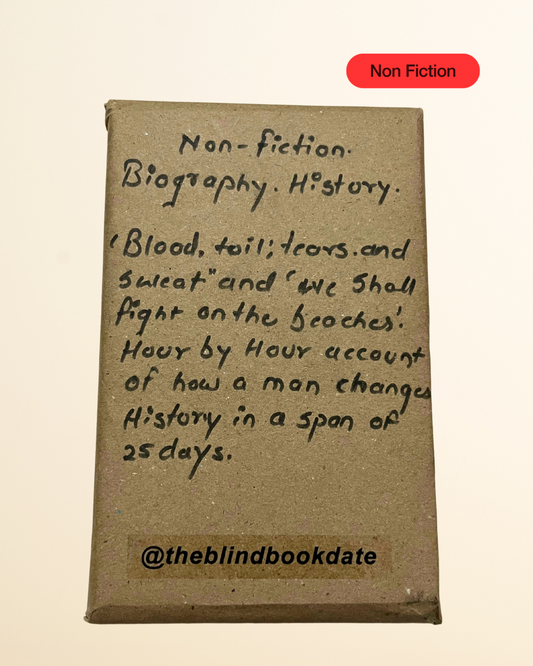 Non Fiction
Non-fiction.
Biography. History.
'Blood, toil; tears. and
sweat" and 'we shall
fight on the beaches'.
Hour by Hour account
of how a man changes
History in a span of
25 days.
@theblindbookdate